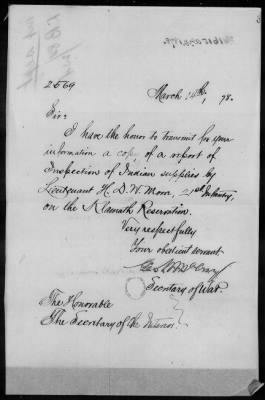 2569
March 14th, 78.
Sir:
I have the honor to transmit for your
information a copy of a report of
Inspection of Indian supplies by
Lieutenant H. D. W. Moore, 21st Infantry,
on the Klamath Reservation.
Very respectfully
Your obedient servant
Geo. W. McCrary
Secretary of War.
The Honorable
The Secretary of the Interior.